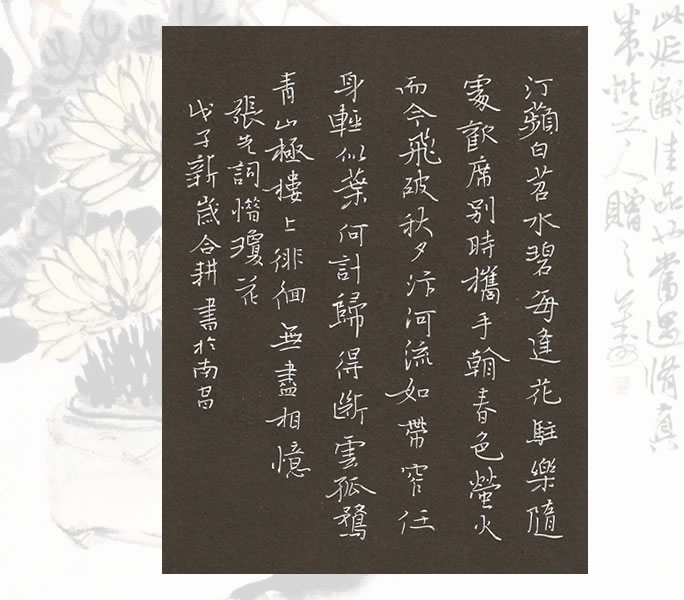 此延齡佳品也常過脩真
養性之人贈之
汀蘋白苕水碧每逢花駐樂隨
處歡席別時攜手翰春色螢火
而今飛破秋夕汴河流如帶窄任
身輕似葉何計歸得斷雲孤鶩
青山極樓上徘徊無盡相憶
張先詞惜瓊花
戊子新歲合耕書於南昌